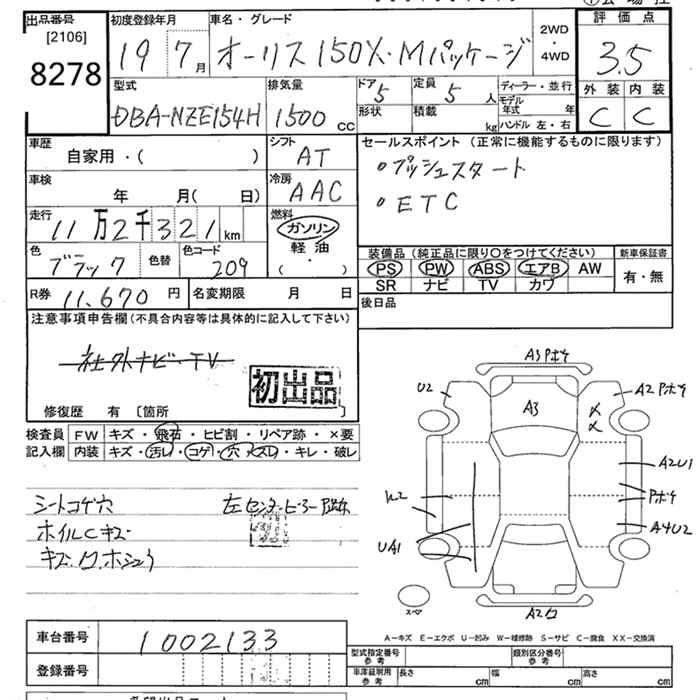 出品番号
[2106]
8278
初度登録年月
19 7月
車名・グレード
オーリス 150X・Mパッケージ
2WD
・
4WD
評価点
3.5
外装 内装
C C
型式
DBA-NZE154H
排気量
1500 CC
ドア
5
定員
5 人
形状
積載
kg
ディーラー・並行
モデル
年式 年
ハンドル 左・右
車歴
自家用・( )
シフト
AT
セールスポイント (正常に機能するものに限ります)
・プッシュスタート
・ETC
車検
年 月( 日)
冷房
AAC
走行
11万2千321km
燃料
ガソリン
軽油
( ・ )
色
ブラック
色替
色コード
209
装備品 (純正品に限り〇をつけてください)
PS PW ABS エアB AW
SR ナビ TV カワ
新車保証書
有・無
R券 11,670 円
名変期限 月 日
後日品
注意事項申告欄(不具合内容等は具体的に記入して下さい)
社外ナビ・TV
初出品
修復歴 有 [箇所 ]
検査員 FW キズ・飛石・ヒビ割・リペア跡・×要
記入欄 内装 キズ・汚レ・コゲ・穴・スレ・キレ・破レ
シートコゲ穴
ホイルCキズ
左センターピラー
A3 Pボケ
U2
A3
A2 Pボケ
A2U1
Pボケ
A4U2
UA1
スペア
A-キズ E-エクボ U-凹み W-補修跡 S-サビ C-腐食 XX-交換済
車台番号 1002133
登録番号
型式指定番号
参考
類別区分番号
参考
車庫証明用
参考
長さ cm
幅 cm
高さ cm